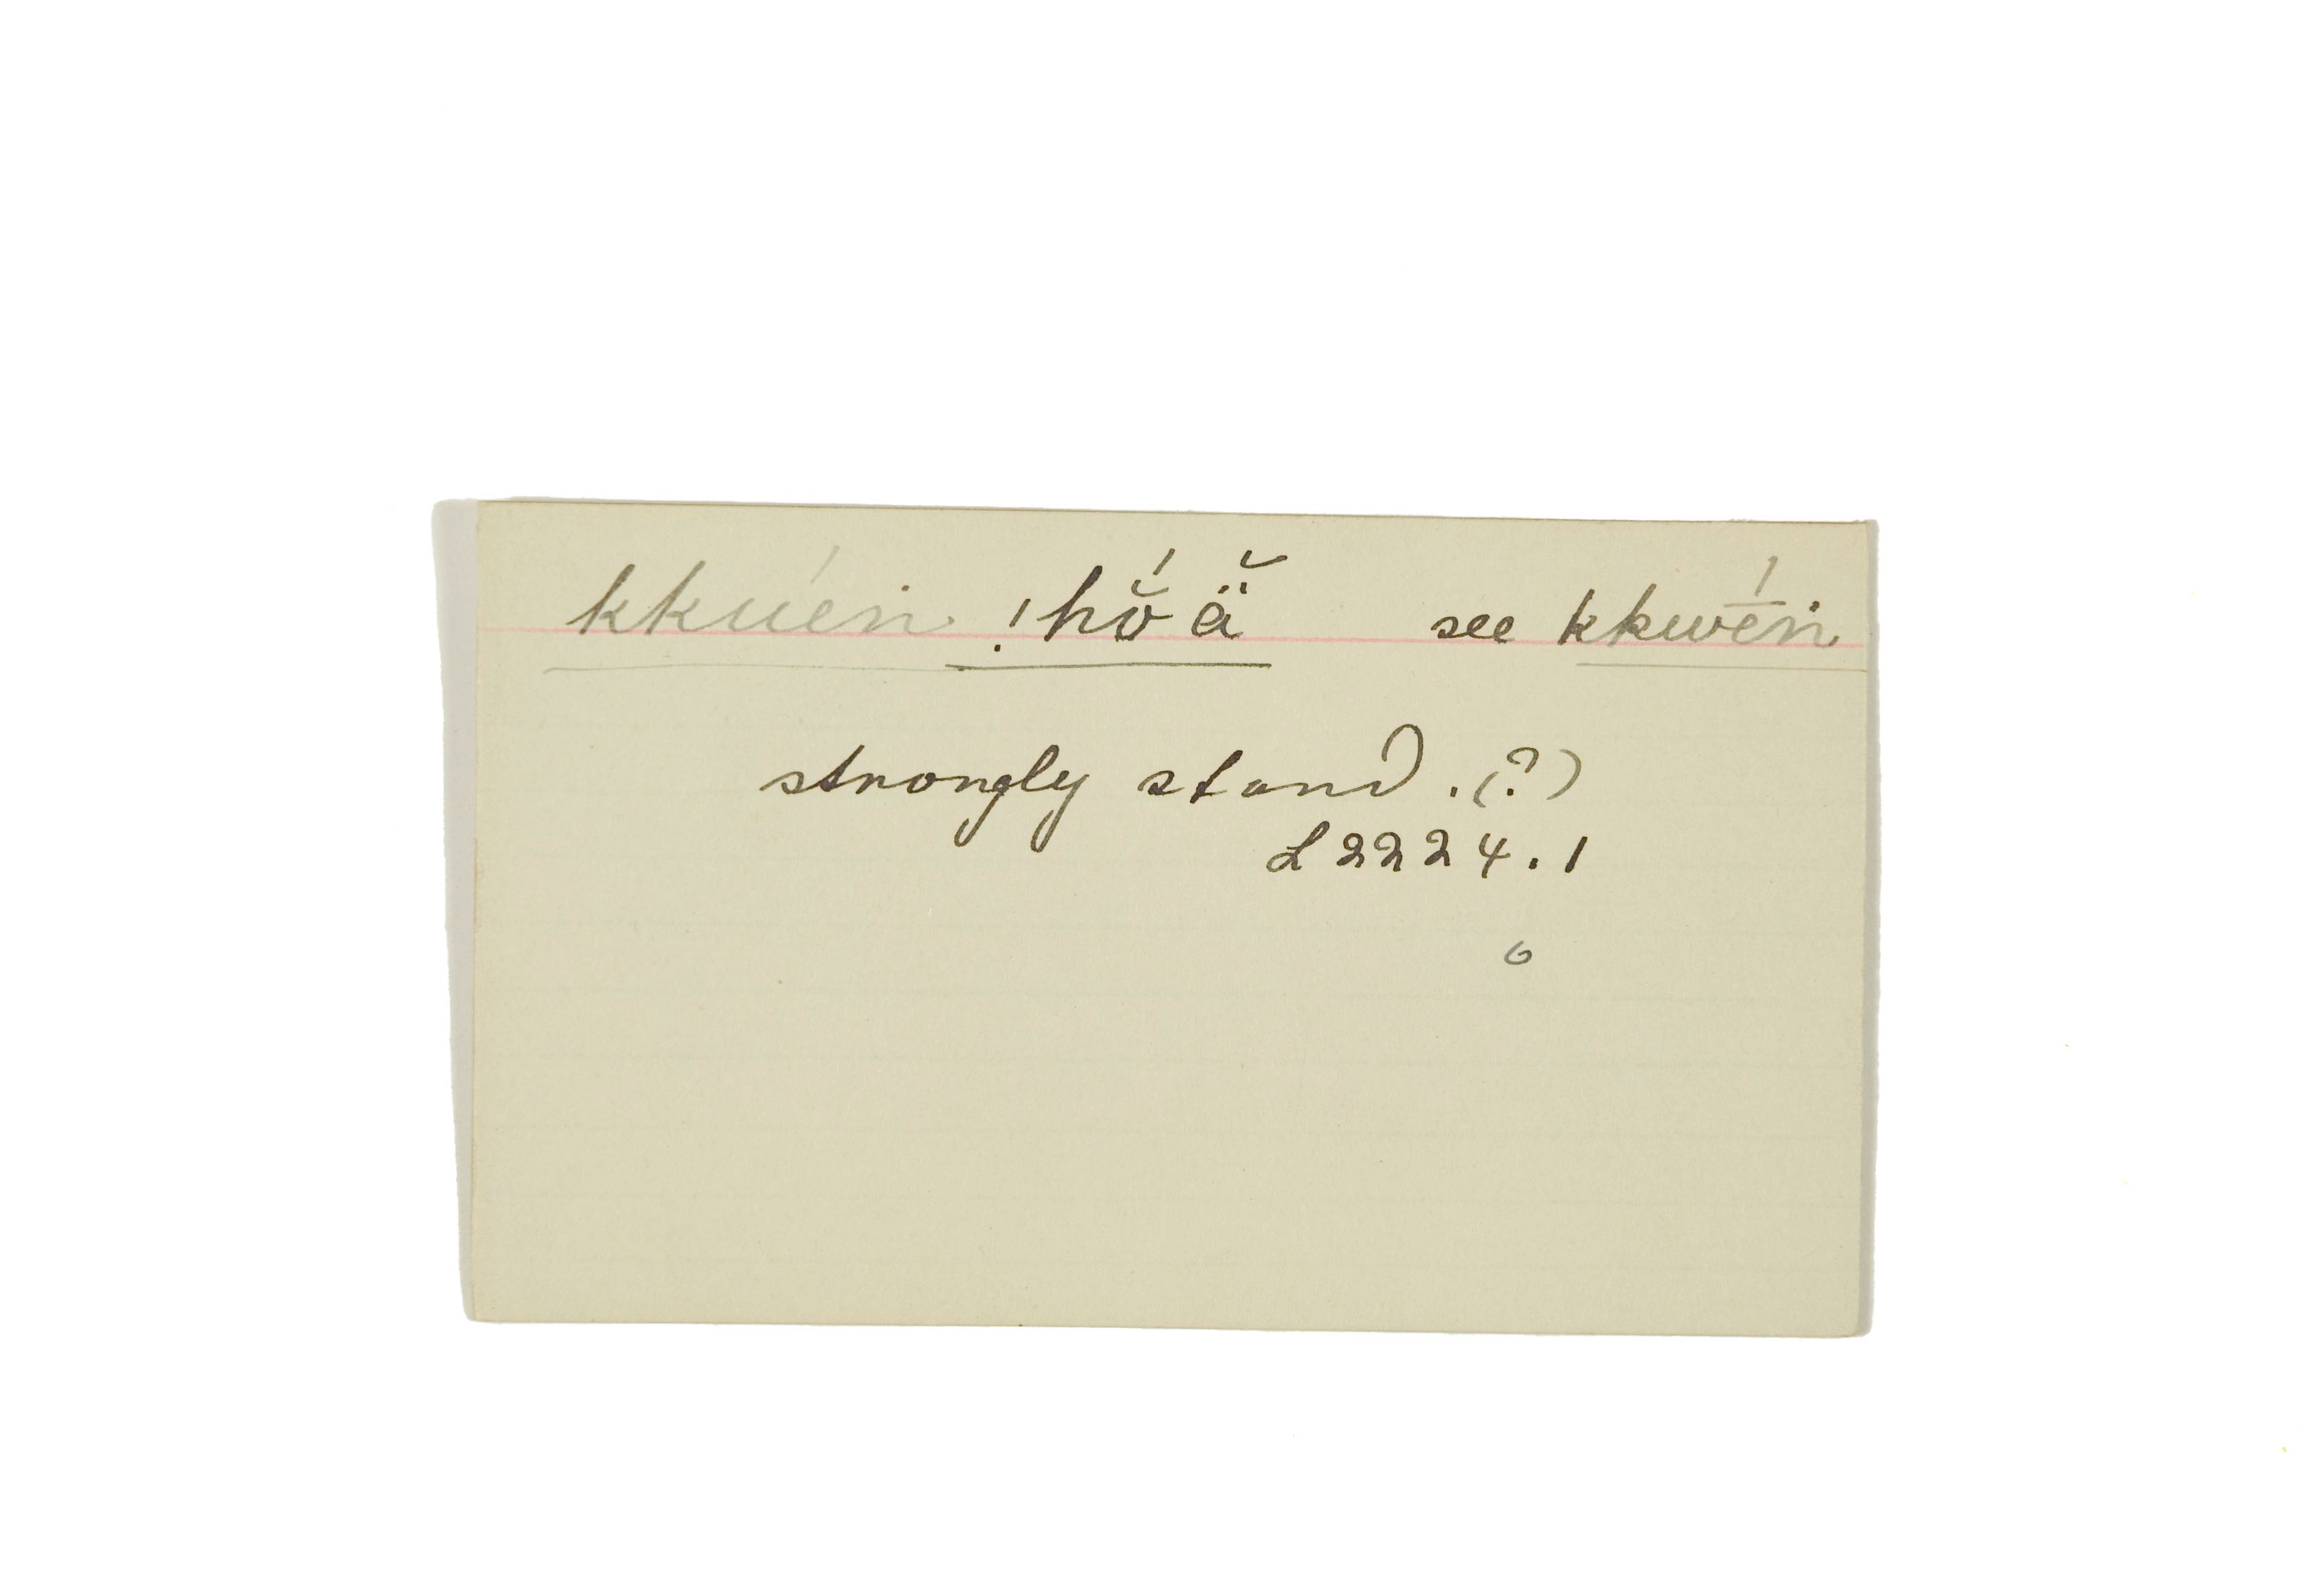 kkúen !hŏ́ ä̆ see kkwḗn
strongly stand. (?)
L 2224.1
6